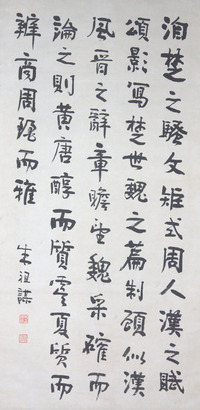 洎楚之騷文矩式周人漢之賦
頌影寫楚世魏之篇制顧似漢
風晉之辭章瞻望魏采確而
論之則黃唐醇而質虞夏質而
辨商周麗而雅
朱祖謀